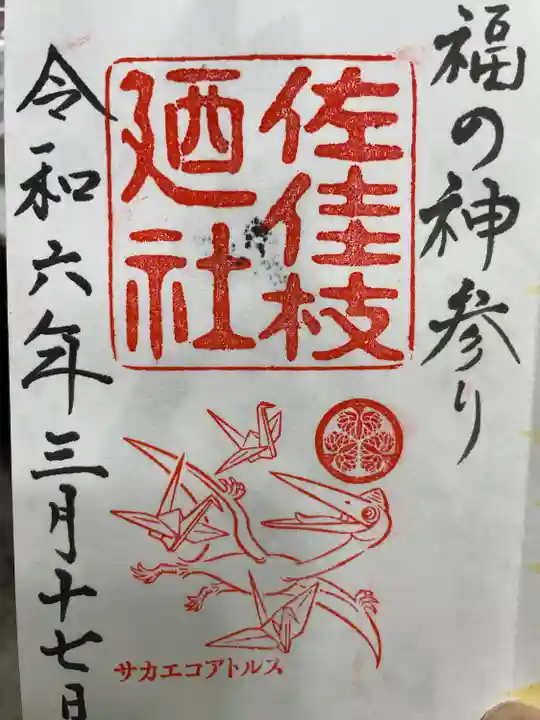 福の神参り
佐佳枝
廼社
サカエコアトルス
令和六年三月十七日